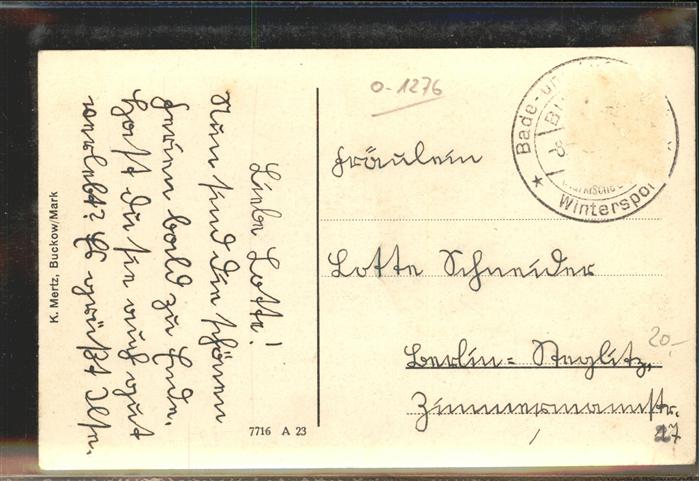 Liebe Lotte!
Nun sind die schönen
Ferien bald zu Ende.
Hast du sie auch gut
verlebt? Es grüßt Ilse.
K. Mertz, Buckow/Mark
7716 A 23
0-1276
Fräulein
Lotte Schneider
Berlin=Steglitz,
Zimmermannstr.
27
20,-
Bade-
Winterspor